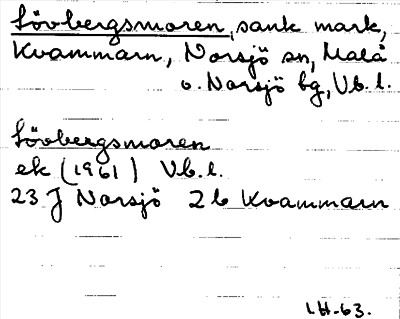 Lövbergsmoren, sank mark,
Kvammarn, Norsjö sn, Malå
o. Norsjö bg, Vb. l.
Lövbergsmoren
ek (1961) Vb. l.
23 J Norsjö 2b Kvammarn
LH-63.